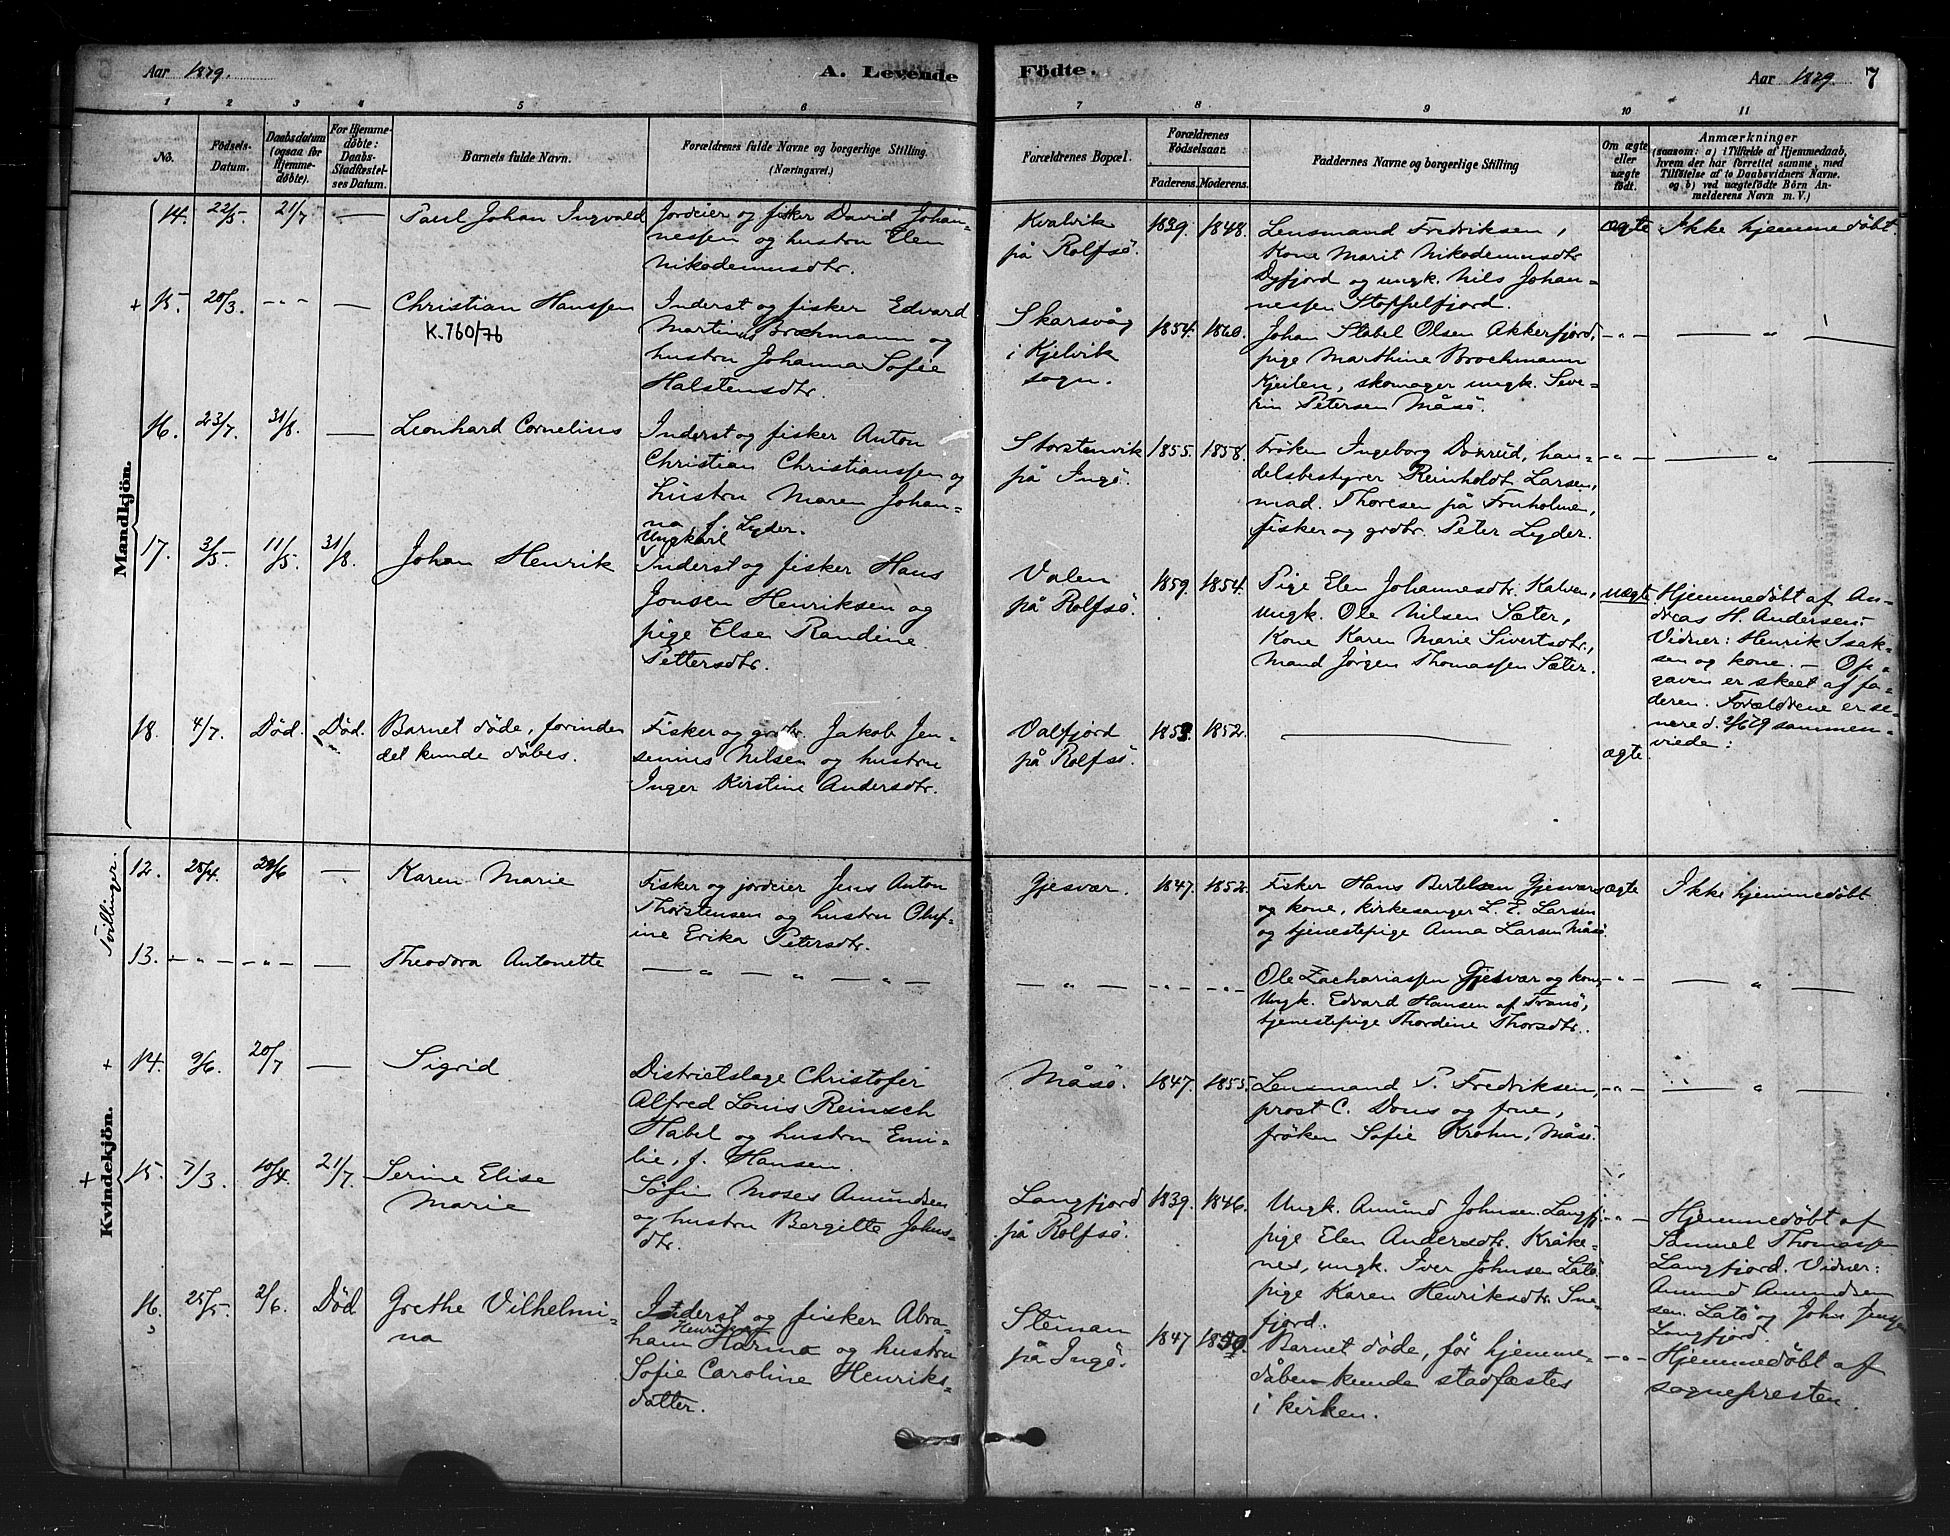 Aar 1879.
A. Levende
Födte.
Aar 1879.
7
1 2 3 4 5 6 7 8 9 10 11
No.
Födsels-
Datum.
Daabsdatum
(ogsaa for
Hjemme-
døbte).
For Hjemme-
døbte:
Daabs-
Stadfæstel-
ses Datum.
Barnets fulde Navn.
Forældrenes fulde Navne og borgerlige Stilling.
(Næringsvei.)
Forældrenes Bopæl.
Forældrenes
Födselsaar.
Faderens. Moderens.
Faddernes Navne og borgerlige Stilling
Om ægte
eller
uægte
født.
Anmærkninger
(saasom: a) i Tilfælde af Hjemmedaab,
hvem der har forrettet samme, med
Tilføielse af to Daabsvidners Navne.
og b) ved uægtefödte Börn An-
melderens Navn m. V.)
Mandkjön.
14. 22/5. 21/7 — Paul Johan Ingvald
Jordeier og fisker David Johan-
nessen og hustru Elen
Nikodemusdtr.
Kvalvik
på Rolfsö.
1839. 1848.
Lensmand Fredriksen,
Kone Marit Nikodemusdtr
Dyfjord og ungk. Nils Johan-
nessen Stoppelfjord.
ægte Ikke hjemmedøbt
+ 15. 20/3. - " - —
Christian Hanssen
K. 760/76
Inderst og fisker Edvard
Martinus Brochmann og
hustru Johanna Sofie
Halstensdtr.
Skarsvåg
i Kjelvik
sogn.
1854. 1860.
Johan Stabel Olsen Akkerfjord,
pige Marthine Brochmann
Kjeilen, skomager ungk. Seve-
rin Petersen Måsö.
- " - — " —
16. 23/7. 31/8. — Leonhard Cornelius
Inderst og fisker Anton
Christian Christianssen og
hustru Maren Johan-
na, f. Lyder.
Storstenvik
på Ingö.
1855. 1858.
Frøken Ingeborg Dønrud, han-
delsbestyrer Reinholdt Larsen,
mad. Thoresen på Fruholmen,
fisker og grdbr. Peter Lyder.
- " - — " —
17. 3/5. 11/5. 31/8. Johan Henrik
Ungkarl
Inderst og fisker Hans
Jonsen Henriksen og
pige Else Randine
Pettersdtr.
Valen
på Rolfsö.
1859. 1854.
Pige Elen Johannesdtr. Kalven,
ungk. Ole Nilsen Sæter,
Kone Karen Marie Sivertsdtr.,
Mand Jørgen Thomassen Sæter.
uægte
Hjemmedøbt af An-
dreas H. Andersen.
Vidner: Henrik Isak-
sen og kone. — Op-
gaven er skeet af fa-
deren. Forældrene er se-
nere d. 2/6 79 sammen-
viede.
18. 4/7. Död. Död.
Barnet døde, forinden
det kunde døbes.
Fisker og grdbr. Jakob Jen-
senius Nilsen og hustru
Inger Kirstine Andersdtr.
Valfjord
på Rolfsö.
1852.
—
ægte.
Kvindekjön.
Tvillinger.
12. 25/4. 29/6 — Karen Marie
Fisker og jordeier Jens Anton
Thorstensen og hustru Oluf-
ine Erika Petersdtr.
Gjesvær.
1847. 1852.
Fisker Hans Bertelsen Gjesvær
og kone, kirkesanger L. E. Larsen
og tjenestepige Anna Larsen Måsö.
ægte Ikke hjemmedøbt
13. - " - - " - — Theodora Antonette
— " — " — " —
— " — - " - - " -
Ole Zachariassen Gjesvær og kone,
Ungk. Edvard Hansen af Tranö,
tjenestepige Thordine Thorsdtr.
- " - — " —
+ 14. 9/6. 20/7 — Sigrid
Districtslæge Christofer
Alfred Louis Reinsch
Habel og hustru Emi-
lie, f. Hansen.
Måsö.
1847. 1855.
Lensmand P. Fredriksen,
prost C. Dons og frue,
frøken Sofie Krohn, Måsö.
- " - — " —
+ 15. 7/3. 10/4. 21/7.
Serine Elise
Marie
Søfin Moses Amundsen
og hustru Bergitte Johns-
dtr.
Langfjord
på Rolfsö.
1839. 1846.
Ungk. Amund Johnsen Langfj.
pige Elen Andersdtr. Kråke-
nes, ungk. Iver Johnsen Latö
pige Karen Henriksdtr. Sne-
fjord.
- " -
Hjemmedøbt af
Samuel Thomassen
Langfjord. Vidner:
Amund Amundsen
Latö og John
Langfjord.
16. 25/5. 2/6. Död
Grethe Vilhelmi-
na
Inderst og fisker Abra-
ham Henriksen
Harma og hustru
Sofie Caroline Henriks-
datter.
Stenan
på Ingö.
1847 1850.
Barnet døde, før hjemme-
dåben kunde stadfæstes
i kirken.
- " -
Hjemmedøbt af
sognepresten.